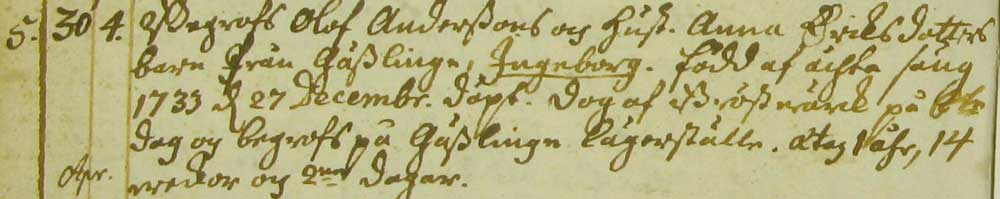 5. 30 4. Begrofs Olof Anderßons och Hust. Anna Ericks dotters
barn från Gäßlinge, Ingeborg. född af ächta säng
1733 d 27 Decembr. döpt. Dog af bröstwärck på
dag och begrofs på Gäßlinge lägerställe. ålag 1 åhr, 14
Apr. weckor och 2ne dagar.